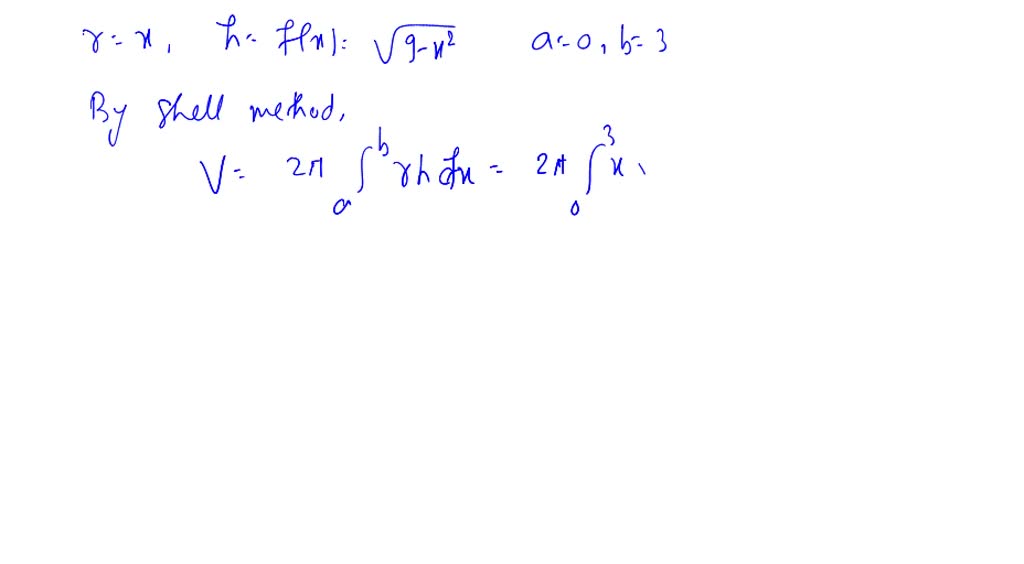 r = x, h = f(x) = √(9-x²) a = 0, b = 3
By shell method,
V = 2π ∫_a^b rh dx = 2π ∫_0^3 x